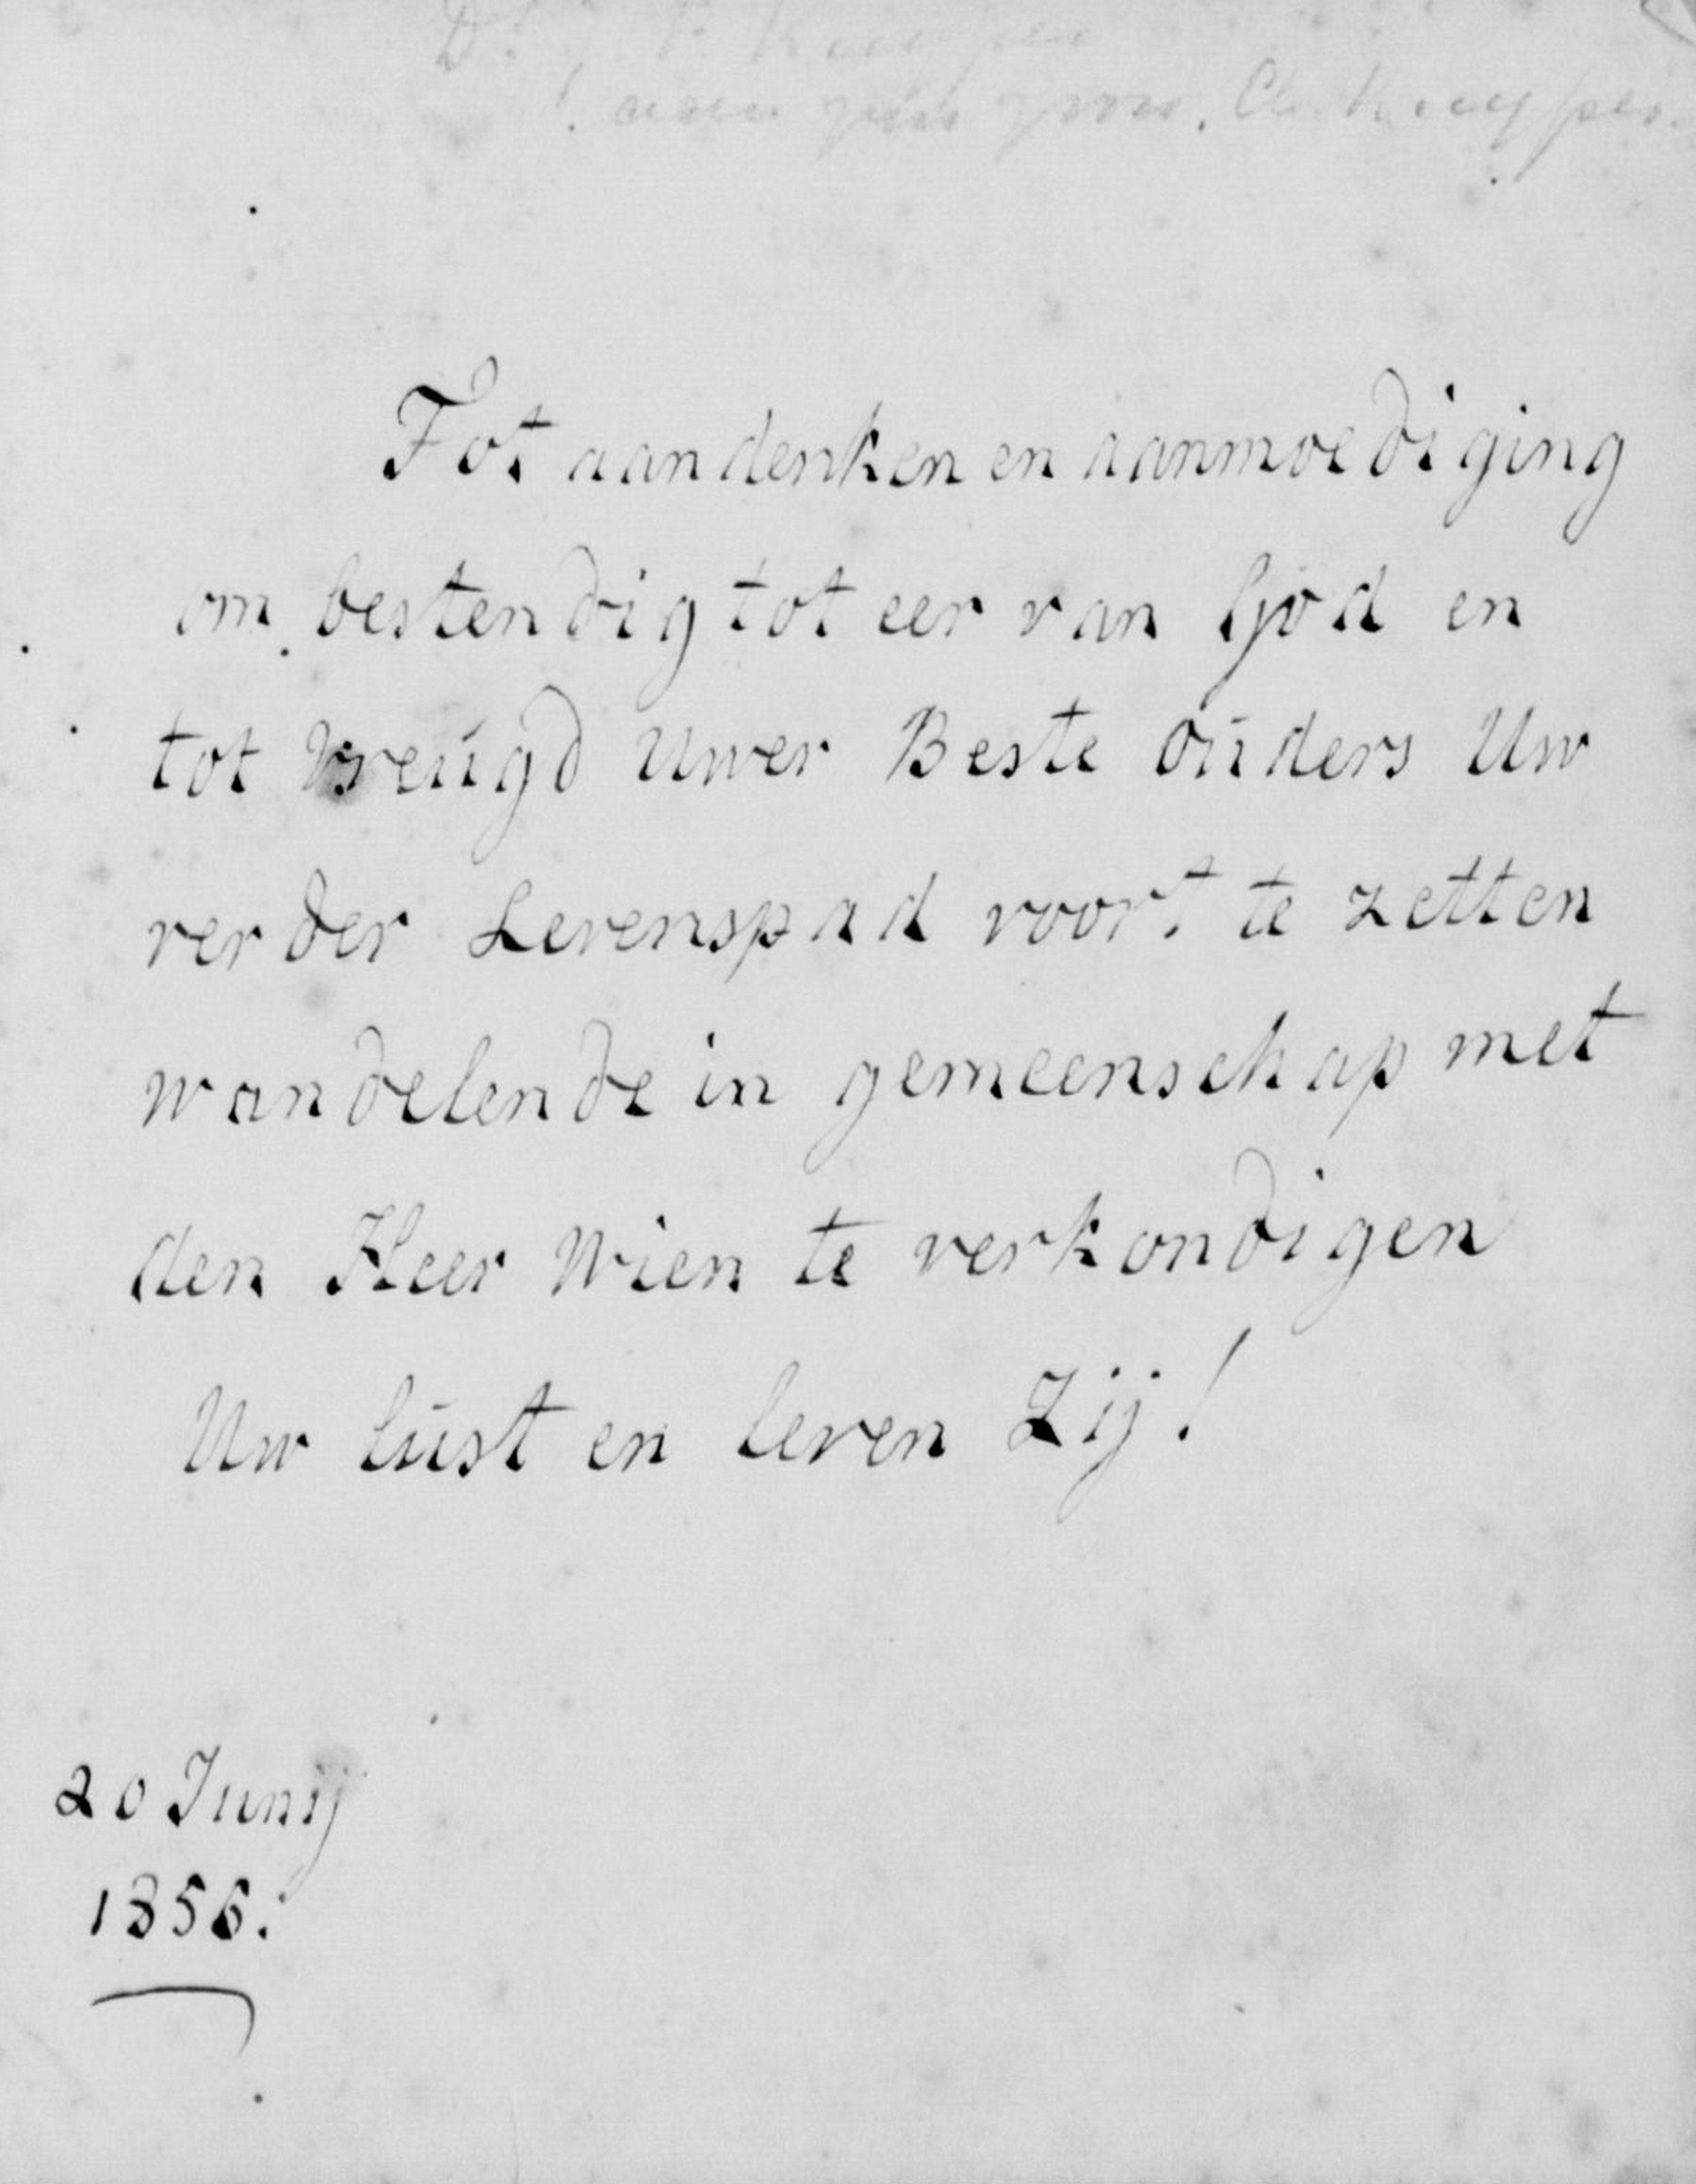 aan zijn zoon. A. Kuyper.
Tot aandenken en aanmoediging
om bestendig tot eer van God en
tot Vreugd Uwer Beste Ouders Uw
verder Levenspad voort te zetten
wandelende in gemeenschap met
den Heer Wien te verkondigen
Uw lust en leven Zij!
20 Junij
1856.